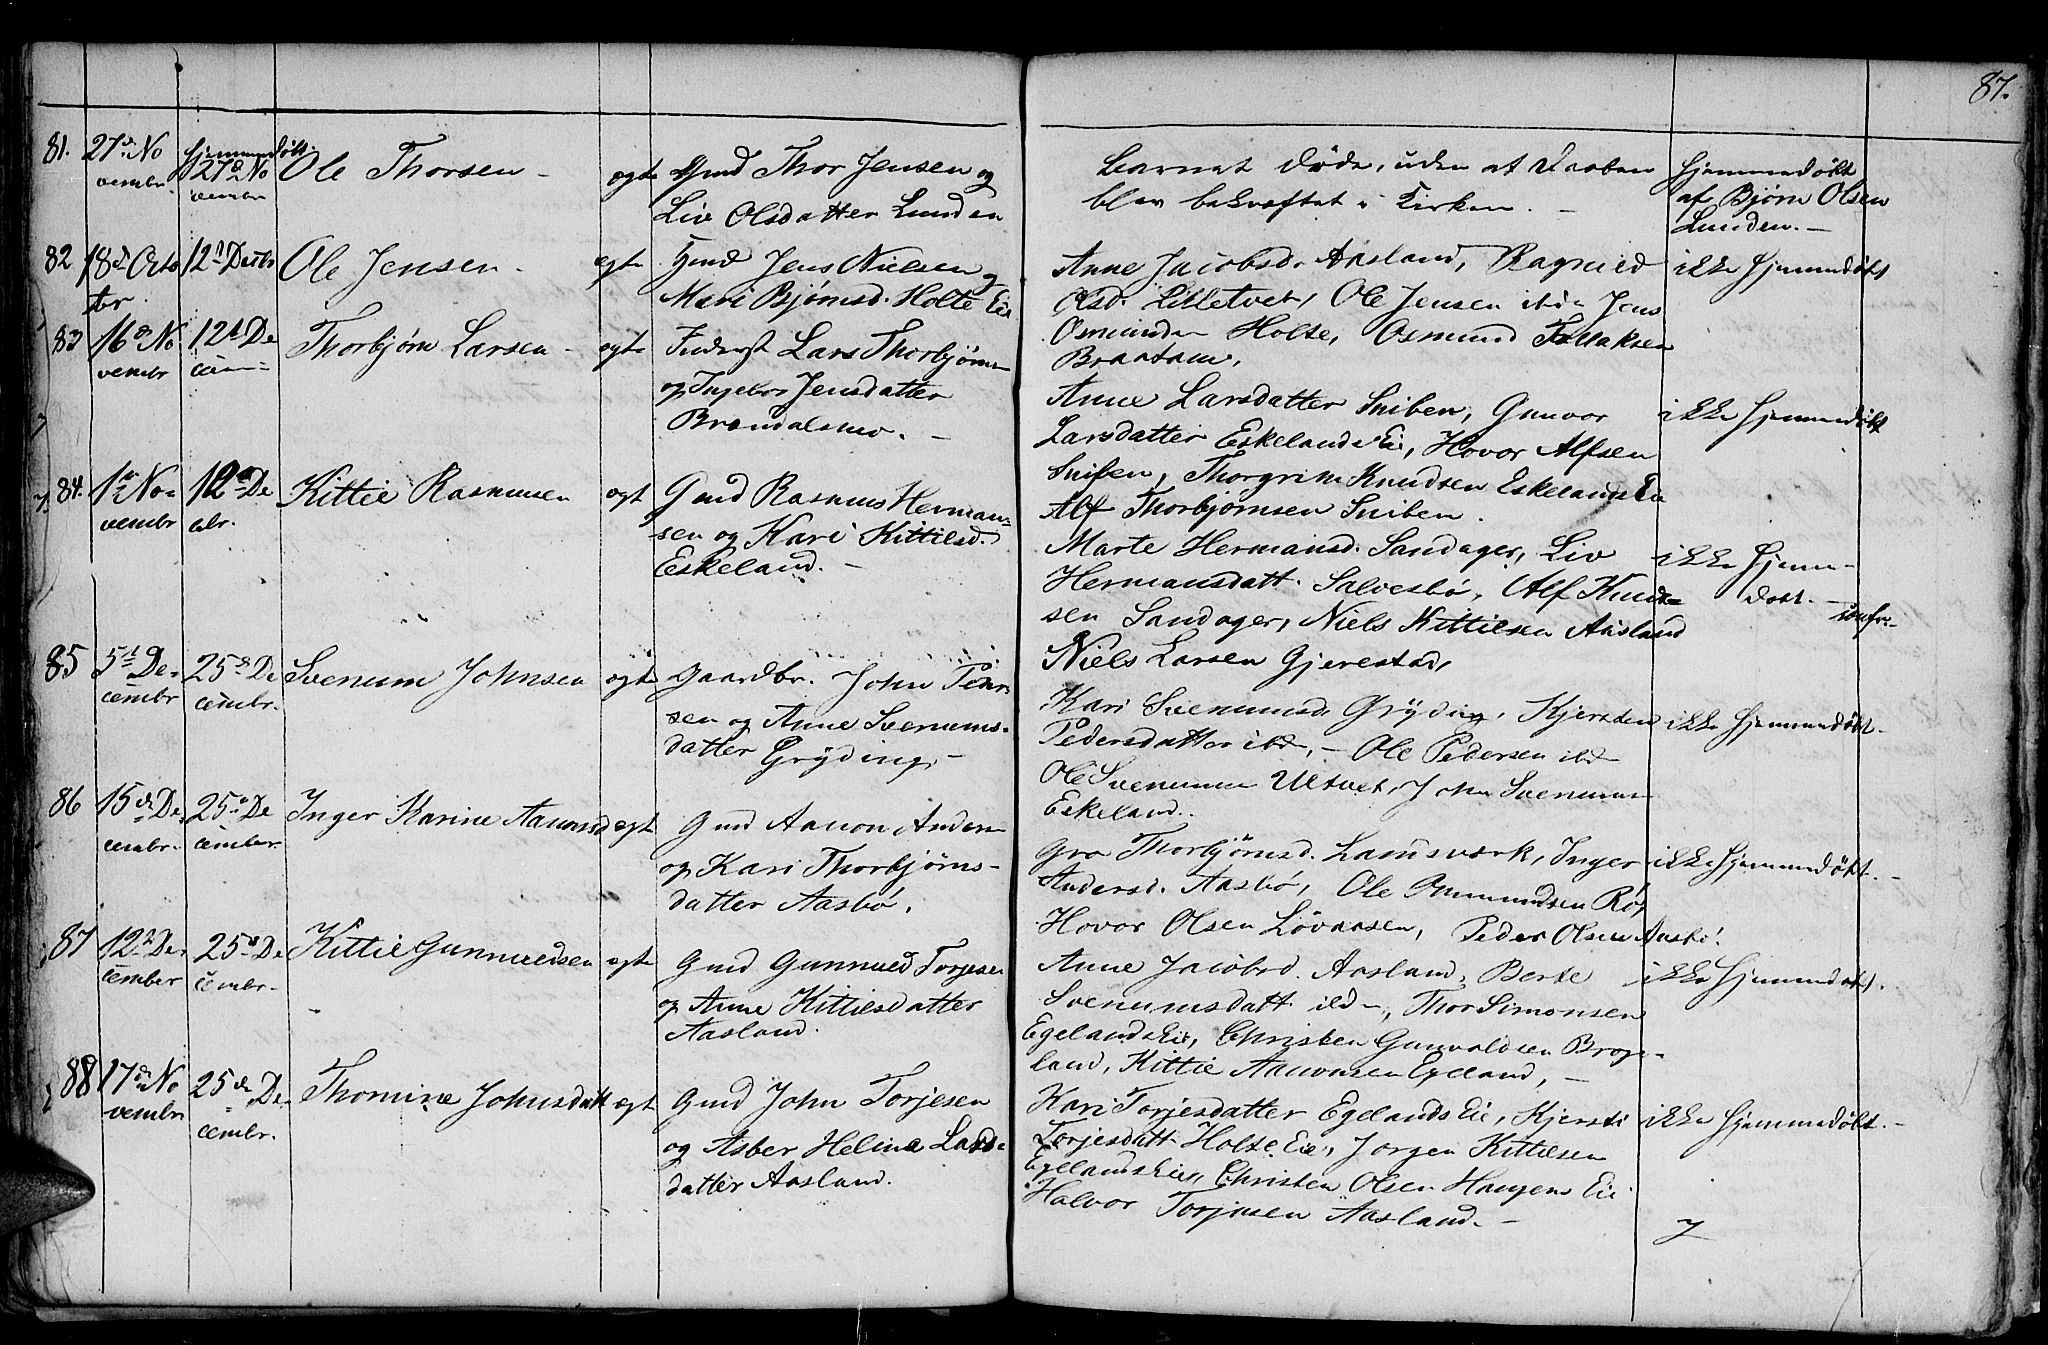 87.
81. 27de No
vembr.
hjemmedøbt.
27de No
vembr
Ole Thorsen -
ogte Gmd Thor Jensen og
Liv Olsdatter Lunden
Barnet døde, uden at Daaben
blev bekræftet i Kirken. -
hjemmedøbt
af Bjørn Olsen
Lunden. -
82 18de Octo
br.
12te Decbr
Ole Jensen -
egte Gmd Jens Nielsen og
Mari Bjørnsd. Holte Eie
Anne Jacobsd. Aasland, Ragnild
Olsd. Lilletvet, Ole Jensen ibd. Jens
Osmundsen Holte, Osmund
Braatane,
ikke hjemmedøbt
83 16de No
vembr
12te De
cem
Thorbjørn Larsen -
egte Inderst Lars Thorbjørnsen
og Ingebor Jensdatter
Brændalsmo. -
Anne Larsdatter Sniben, Gunvor
Larsdatter Eskelands Eie, Hovor Alfsen
Sniben, Thorgrim Knudsen Eskelands Eie
Alf Thorbjørnsen Sniben.
ikke hjemmedøbt
84. 1te No-
vembr
12te De
cbr.
Kittil Rasmusen
egt Gmd Rasmus Herman-
sen og Kari Kittilsd.
Eskeland. -
Marte Hermansd. Sandager, Liv
Hermansdatt. Salvesbø, Alf Knud-
sen Sandager, Niels Kittilsen Aasland
Niels Larsen Gjerestad,
ikke hjemme-
døbt. -
85 5te De-
cembr
25de De
cembr.
Svenum Johnsen
egte Gaardbr. John Peder-
sen og Anne Svenums-
datter Gryding, -
Kari Svenumsd. Gryding, Kjersten
Pedersdatter ibd, - Ole Pedersen ibd
Ole Svenumsen Ultvet, John Svenumsen
Eskeland.
ikke hjemmedøbt.
86 15de De
cembr.
25de De
cember.
Inger Karine Aaronsd
egt Gmd Aaron Anders
og Kari Thorbjørns-
datter Aasbø.
Gro Thorbjørnsd. Landsværk, Inger
Andersd. Aasbø, Ole Gunmundsen Rø,
Hovor Olsen Løvaasen, Peder Olsen Aasbø.
ikke hjemmedøbt. -
87 12te De
cember
25de De
cembr.
Kittil Gunmundsen
egte Gmd Gunmund Torjesen
og Anne Kittilsdatter
Aasland.
Anne Jacobsd. Aasland, Berte
Svenumsdatt. ibd, Thor Simonsen
Egelands Eie, Christen Gunvaldsen Broge-
land, Kittil Aaronsen Egeland, -
ikke hjemmedøbt.
88 17de No
vembr
25de De
cembr.
Thomine Johnsdatt
egt Gmd John Torjesen
og Asber Heline Lars-
datter Aasland.
Kari Torjesdatter Egelands Eie, Kjersti
Torjesdatt. Holte Eie, Jørgen Kittilsen
Egelands Eie, Christen Olsen Haugens Eie
Halvor Torjesen Aasland. -
ikke hjemmedøbt. -